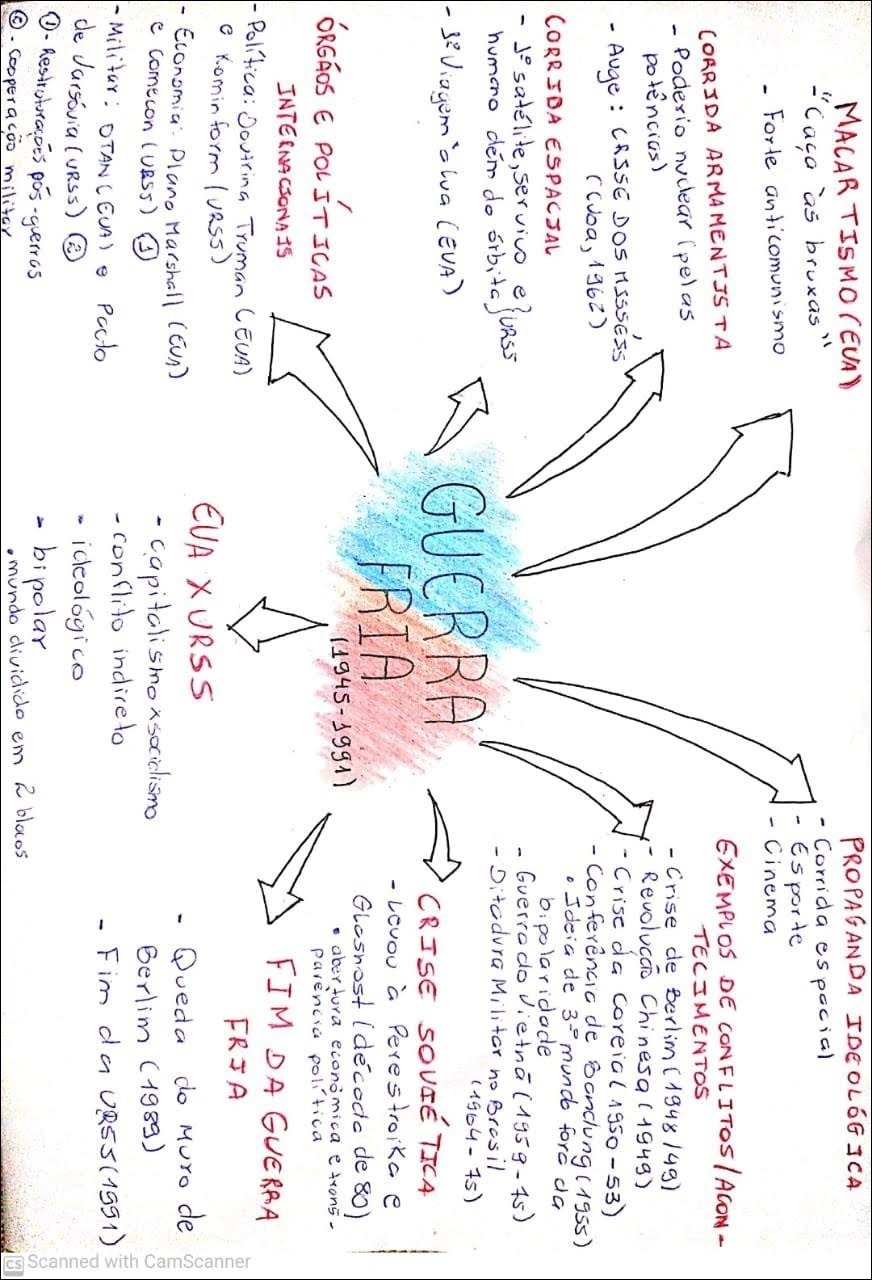 MACARTISMO (EUA)
- "Caça às bruxas"
- Forte anticomunismo
CORRIDA ARMAMENTISTA
- Poderio nuclear (pelas
potências)
- Auge: CRISE DOS MISSÉIS
(Cuba, 1962)
CORRIDA ESPACIAL
- 1º satélite, ser vivo e
humano além da órbita } URSS
- 1ª Viagem à lua (EUA)
ÓRGÃOS E POLÍTICAS
INTERNACIONAIS
- Política: Doutrina Truman (EUA)
e Kominform (URSS)
- Economia: Plano Marshall (EUA)
e Comecon (URSS) ①
- Militar: OTAN (EUA) e Pacto
de Varsóvia (URSS) ②
① - Restruturações pós-guerras
② - Cooperação militar
GUERRA
FRIA
(1945-1991)
EUA X URSS
- Capitalismo x socialismo
- conflito indireto
- ideológico
- bipolar
• mundo dividido em 2 blocos
PROPAGANDA IDEOLÓGICA
- Corrida espacial
- Esporte
- Cinema
EXEMPLOS DE CONFLITOS/ACON-
TECIMENTOS
- Crise de Berlim (1948/49)
- Revolução Chinesa (1949)
- Crise da Coreia (1950-53)
- Conferência de Bandung (1955)
• Ideia de 3º mundo fora da
bipolaridade
- Guerra do Vietnã (1959-75)
- Ditadura Militar no Brasil
(1964-75)
CRISE SOVIÉTICA
- Levou à Perestroika e
Glasnost (década de 80)
• abertura econômica e trans-
parência política
FIM DA GUERRA
FRIA
- Queda do Muro de
Berlim (1989)
- Fim da URSS (1991)
CS Scanned with CamScanner